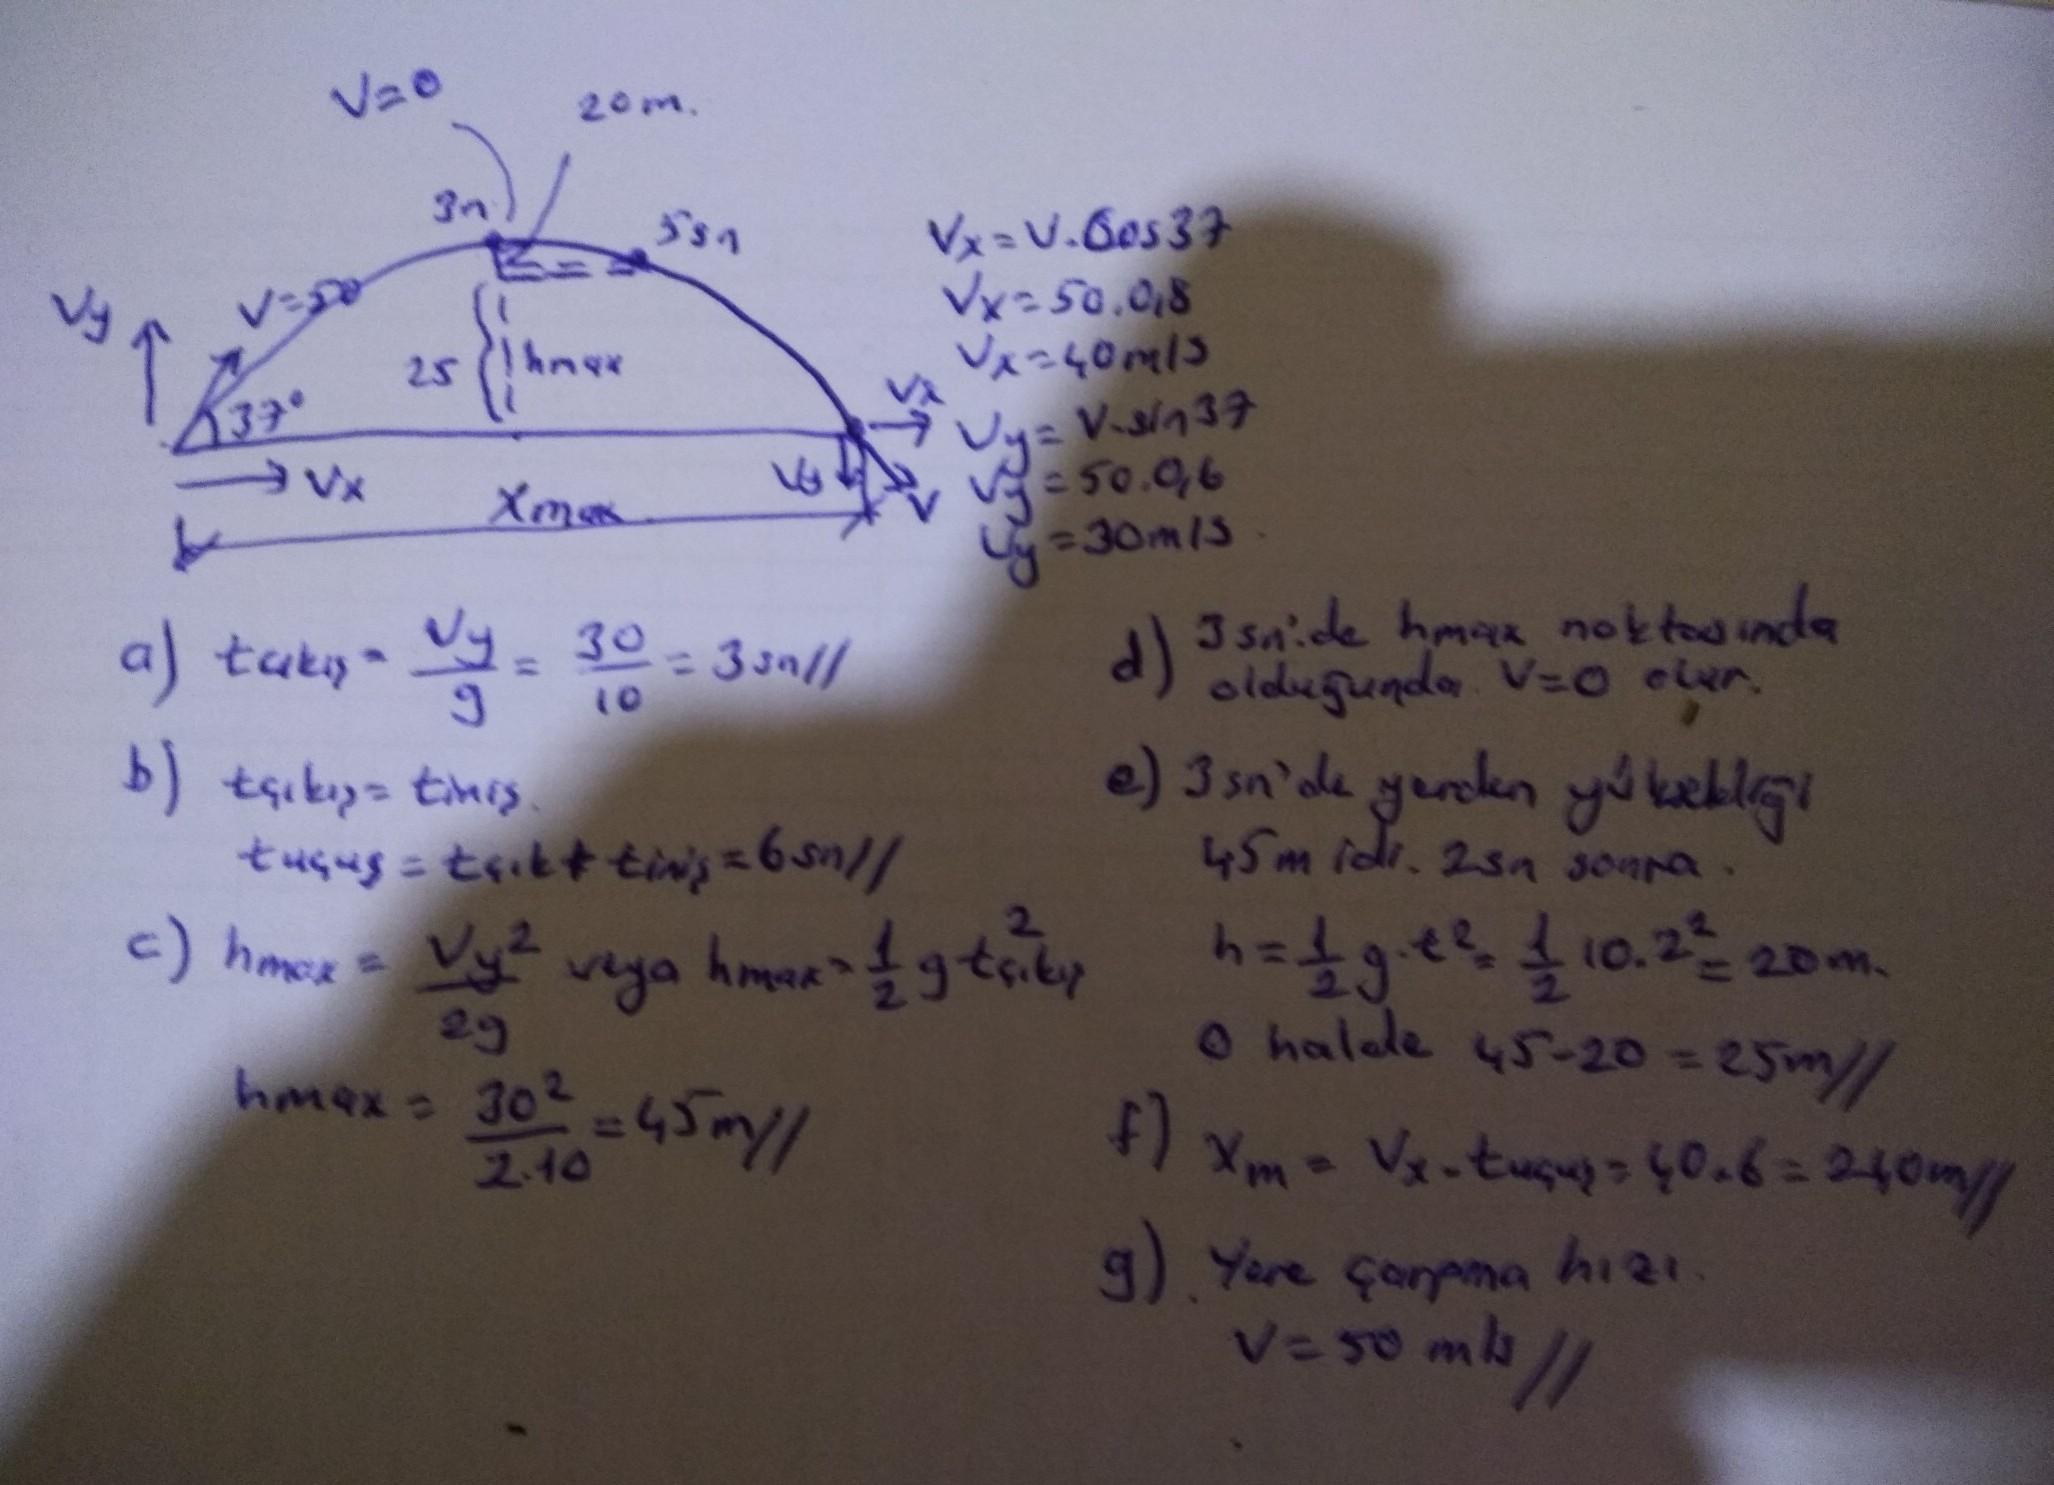 V=0
20m.
3n
5sn
Vy
V=50
25
hmax
37°
Vx
Vx
Vy
V
Xmax
Vx=V.Cos37
Vx=50.0,8
Vx=40m/s
Vy=V.sin37
Vy=50.0,6
Vy=30m/s
a) tçıkış= Vy/g = 30/10 = 3sn//
b) tçıkış= tiniş.
tuçuş = tçık+ tiniş=6sn//
c) hmax = Vy²/2g veya hmax=1/2 g tçıkış²
hmax = 30²/2.10 = 45m//
d) 3sn'de hmax noktasında
olduğunda V=0 olur.
e) 3sn'de yerden yüksekliği
45m idi. 2sn sonra.
h=1/2 g.t²= 1/2 10.2²=20m.
O halde 45-20=25m//
f) Xm = Vx.tuçuş=40.6=240m//
g). Yere çarpma hızı.
V=50 m/s//